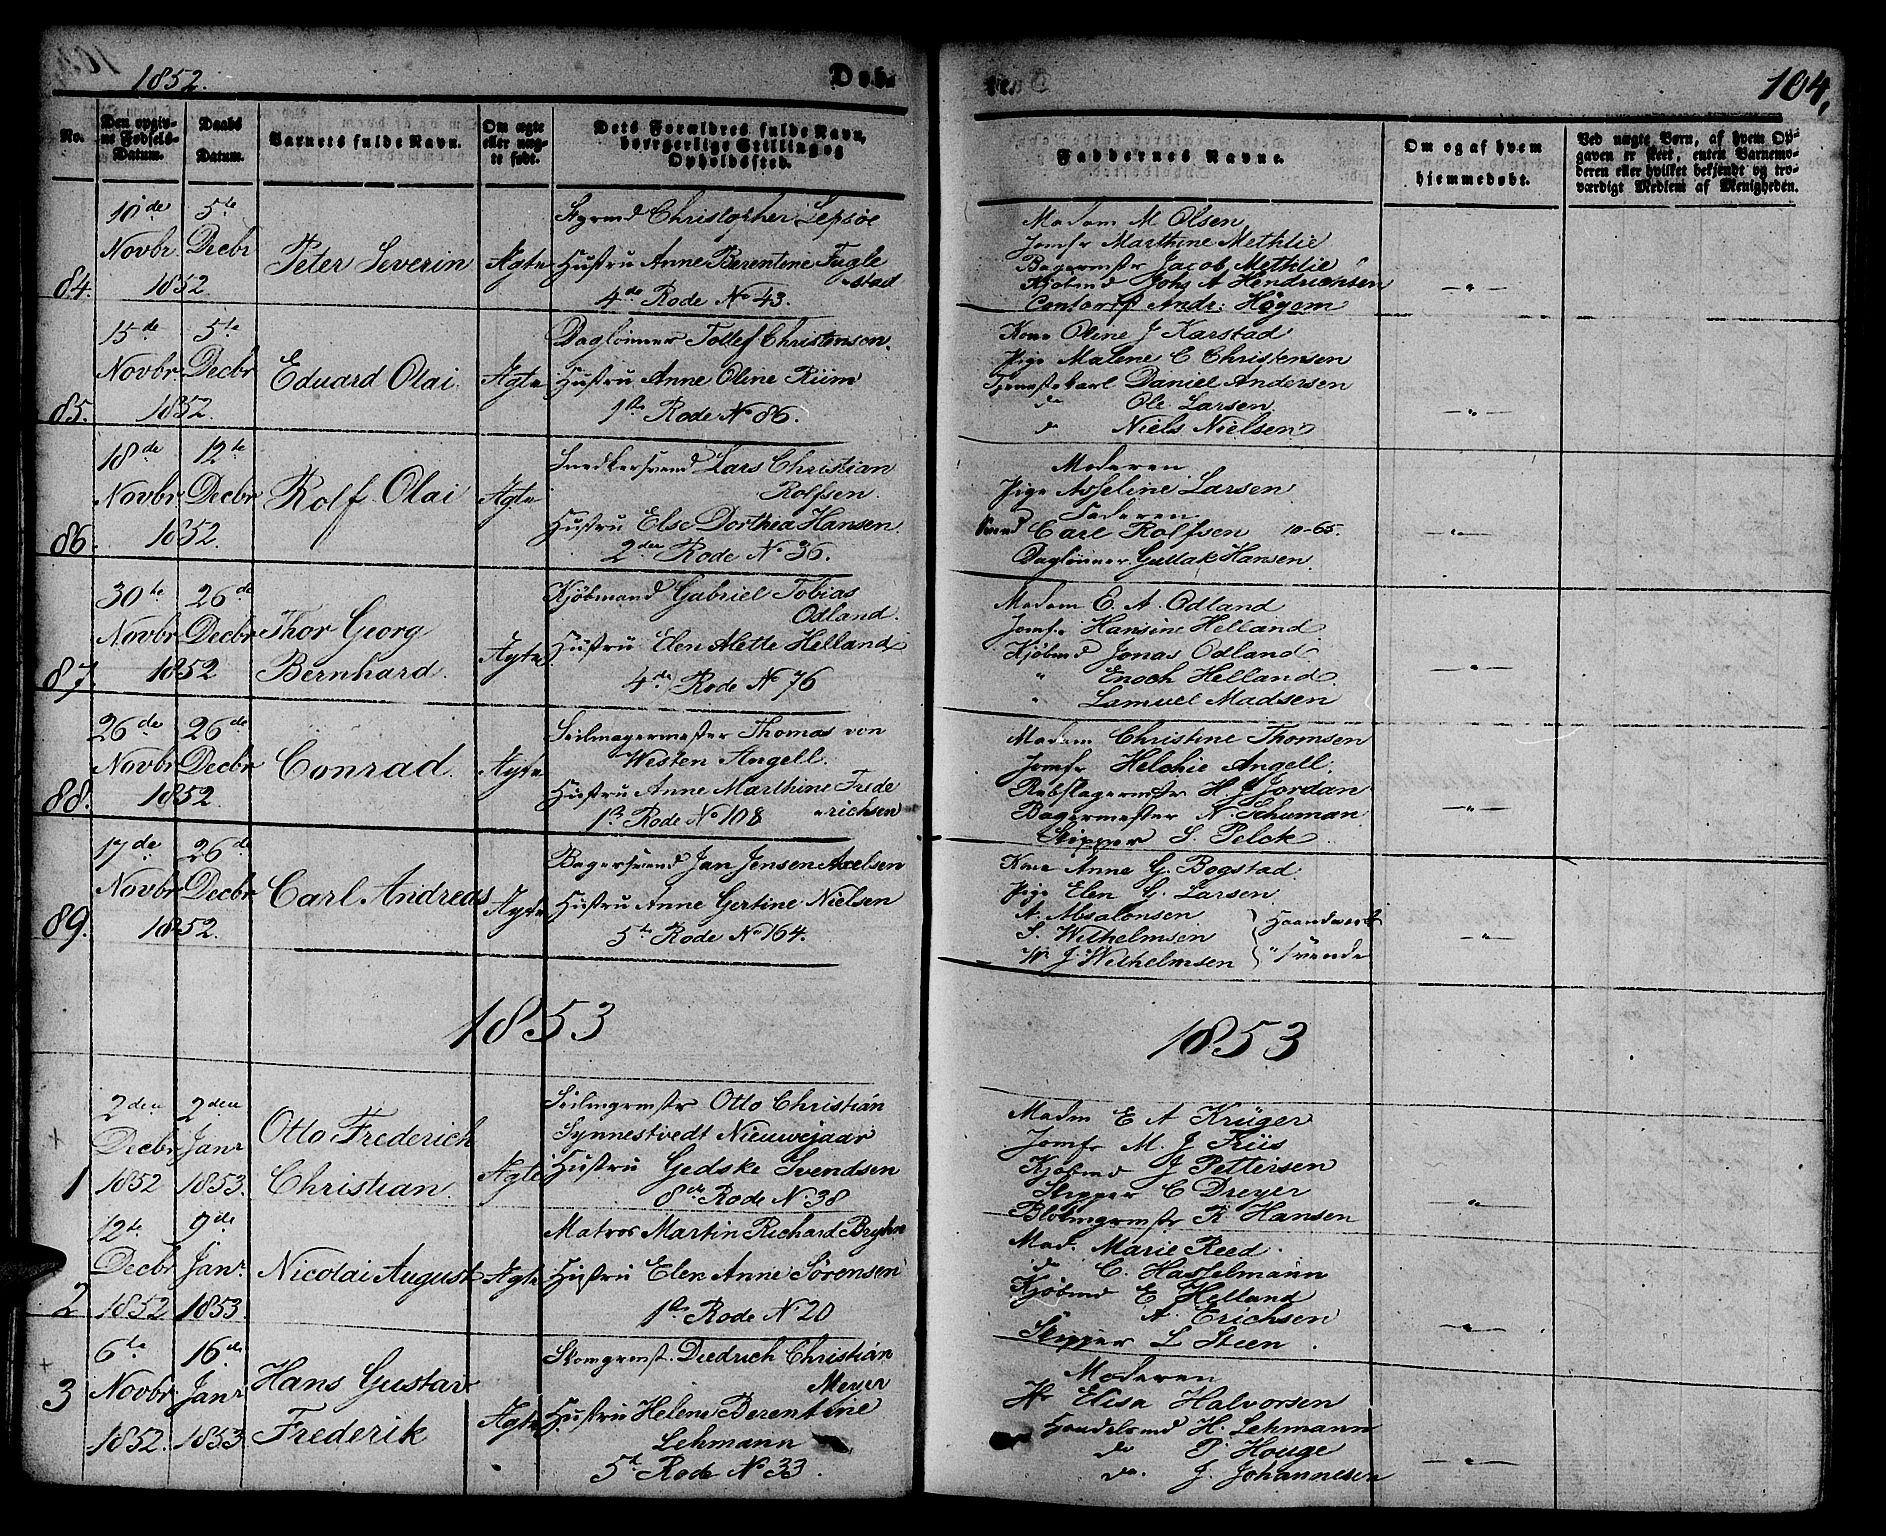 1852.
Døbte
104.
No.
Den opgiv-
ne Fødsels-
Datum.
Daabs
Datum.
Barnets fulde Navn.
Om ægte
eller uæg-
te født.
Dets Forældres fulde Navn,
borgerlige Stilling og
Opholdssted.
Faddernes Navne.
Om og af hvem
hjemmedøbt.
Ved uægte Børn, af hvem Op-
gaven er skeet, enten Barnemo-
deren eller hvilket bekjendt og tro-
værdigt Medlem af Menigheden.
84.
10de
Novbr
1852
5te
Decbr
Peter Severin
Ægte
Styrmd Christopher Lepsøe
Hustru Anne Berentine Fugle
stad
4de Rode No 43.
Madam M Olsen
Jomfr Marthine Methlie
Bagermstr Jacob Methlie
Kjøbmd Johs A Hendrichsen
Contorist Andr: Höyem
85.
15de
Novbr
1852.
5te
Decbr
Eduard Olai
Ægte
Daglönner Tollef Christensen.
Hustru Anne Oline Riim
1ste Rode No 86.
Kone Oline J Karstad
Pige Malene C Christensen
Tjenestekarl Daniel Andersen
do Ole Larsen
do Niels Nielsen
86.
18de
Novbr
1852.
12te
Decbr
Rolf Olai
Ægte
Snedkersvend Lars Christian
Rolfsen.
Hustru Else Dorthea Hansen
2den Rode No 36.
Moderen
Pige Asseline Larsen
Faderen
Svend Carl Rolfsen 10-65.
Daglönner Gullak Hansen
87.
30te
Novbr
1852
26de
Decbr
Thor Georg
Bernhard.
Ægte
Kjøbmand Gabriel Tobias
Odland.
Hustru Elen Mette Helland
4de Rode No 76
Madam E. A. Odland
Jomfr Hansine Helland
Kjøbmd Jonas Odland
" Enoch Helland
" Samuel Madsen
88.
26de
Novbr
1852
26de
Decbr
Conrad.
Ægte
Seilmagermester Thomas von
Westen Angell.
Hustru Anne Marthine Frede
richsen
1ste Rode No 108
Madam Christine Thomsen
Jomfr Helchie Angell.
Rebslagermstr H. J Jordan
Bagermester N. Schuman
Skipper S. Pelck.
89.
17de
Novbr
1852.
26de
Decbr
Carl Andreas
Ægte
Bagersvend Jan Jensen Axelsen
Hustru Anne Gertine Nielsen
5te Rode No 164.
Kone Anne G. Bogstad
Pige Elen G. Larsen
A. Absalonsen
S. Wilhelmsen
W. J Wilhelmsen
Haandverks
svende
1853
1853
1
2den
Decbr
1852
2den
Janr
1853.
Otto Frederich
Christian.
Ægte
Seilmgrmstr Otto Christian
Synnestvedt Nieuwejaar
Hustru Gedske Svendsen
8de Rode No 38
Madm E A Krüger
Jomfr M. J Friis
Kjøbmd J Pettersen
Skipper C Dreyer
Blokmgrmstr R Hansen
2
12te
Decbr
1852
9de
Janr
1853.
Nicolai August
Ægte
Matros Martin Richard Bryhn
Hustru Elen Anne Sörensen
1ste Rode No 20
Mad. Marie Reed.
do C. Hasselmann
Kjøbmd E Helland
A. Erichsen
Skipper L Steen.
3
6te
Novbr
1852.
16de
Janr
1853.
Hans Gustav
Frederik
Ægte
Skomgrmst. Diedrich Christian
Meyer
Hustru Helene Berentine
Lehmann
5te Rode No 33.
Moderen
Elisa Halvorsen
Handelsmd H. Lehmann
do P. Houge
do. J. Johannesen